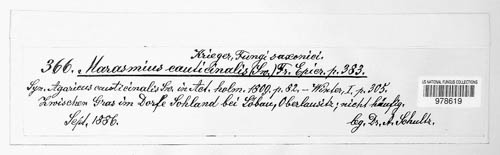 Krieger, Fungi saxonici.
366. Marasmius cauticinalis (Fr.) Fr. Epicr. p. 383.
Syn. Agaricus cauticinalis Fr. in Act. holm. 1800, p. 82. – Winter, I. p. 305.
Zwischen Gras im Dorfe Sohland bei Löbau, Oberlausitz; nicht häufig.
Sept. 1886. lg. Dr. A. Schultz.
US NATIONAL FUNGUS COLLECTIONS
978619